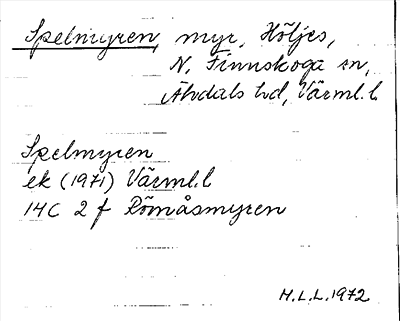 Spelmyren, myr, Höljes,
N. Finnskoga sn,
Älvdals hd, Värml. l.
Spelmyren
ek (1971) Värml. l
14C 2 f Römåsmyren
H.L.L. 1972